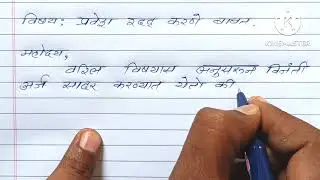 विषय: प्रवेश रद्द करणे बाबत.
महोदय,
वरिल विषयास अनुसरून विनंती
अर्ज सादर करण्यात येतो की